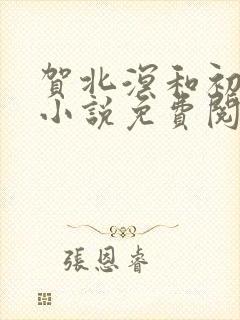 賀北溟和初
小說免費閱
張恩睿